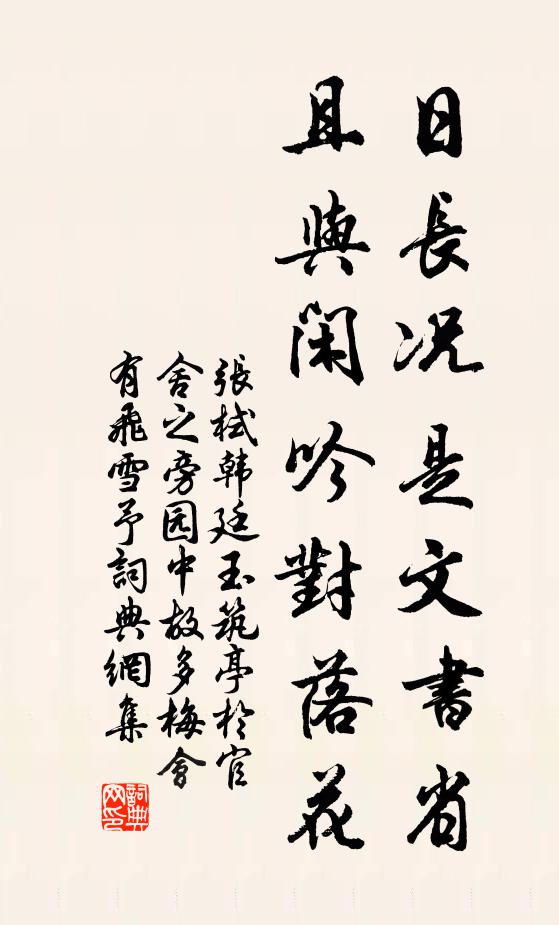 日長况是文書省
且與閑吟對落花
張栻韓廷玉筑亭於官
舍之旁园中故多梅會
有飛雪予詞典網集
詞典网印